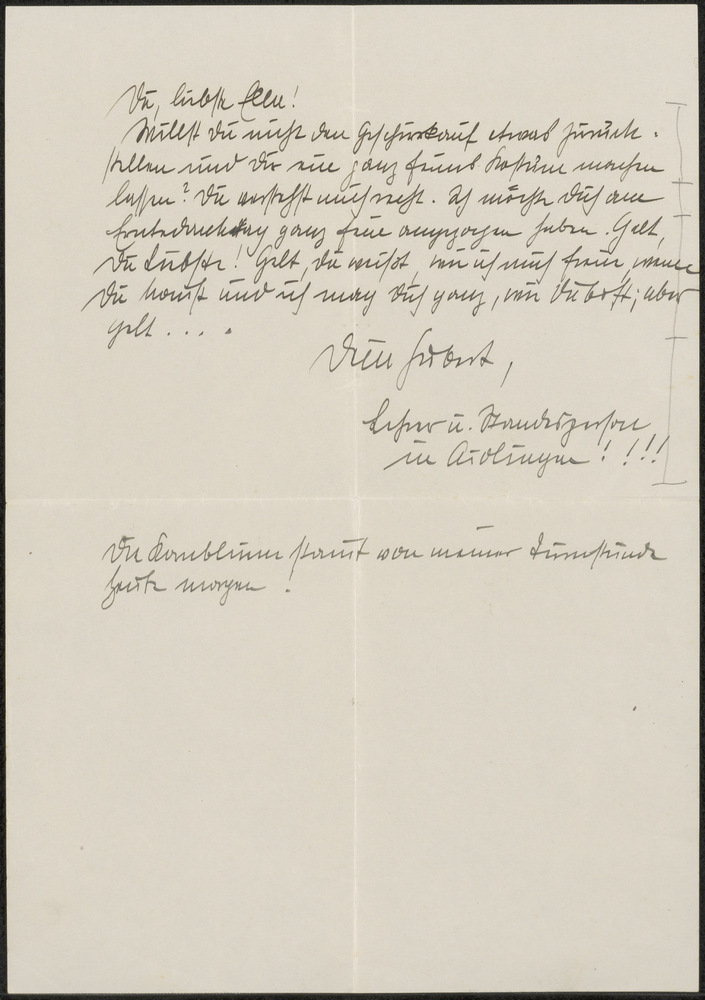 Du, liebste Elln!
Willst du nicht den Geschirrkauf etwas zurück-
stellen und Dir ein ganz feines Kostüm machen
lassen? Du verstehst mich recht. Ich möchte Dich am
Erntedanktag ganz fein angezogen haben. Gelt,
Du Liebste! Gelt, Du weißt, wie ich mich freue, wenn
Du kommst und ich mag Dich ganz, wie Du bist; aber
gelt . . . .
Dein Hubert,
Lehrer u. Standesperson
in Aidlingen! !!!
Die Kornblume stammt von meiner Turnstunde
heute morgen!